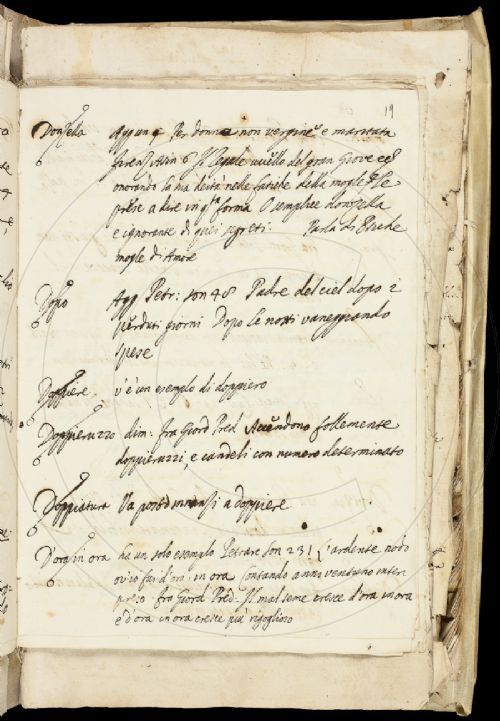 19
Donzella Aggiung Per donna non vergine e maritata
Firenz. Asin 6 Il lepele uccello del gran Giove
onorando la sua deità nelle fatiche della mogle
prese a dire in qta forma O semplice donzella
e ignorante di quei segreti. Parla di Psiche
mogle di Amore
Dopo Agg Petr: son 48 Padre del ciel dopo i
perduti giorni Dopo le notti vaneggiando
spese
Doppiere v'è un esemplo di doppiero
Doppieruzzo dim. fra Giord Pred Accendono follemente
doppieruzzi, e candeli con numero determinato
Doppiatura Va a doppiere
D'ora in ora ha un solo esemplo Petrarc son 231 L'ardente nodo
ov'io fui d'ora in ora contando anni ventuno inter
preso fra Giord Pred. Il mal seme cresce d'ora in ora
e d'ora in ora cresce più rigoglioso